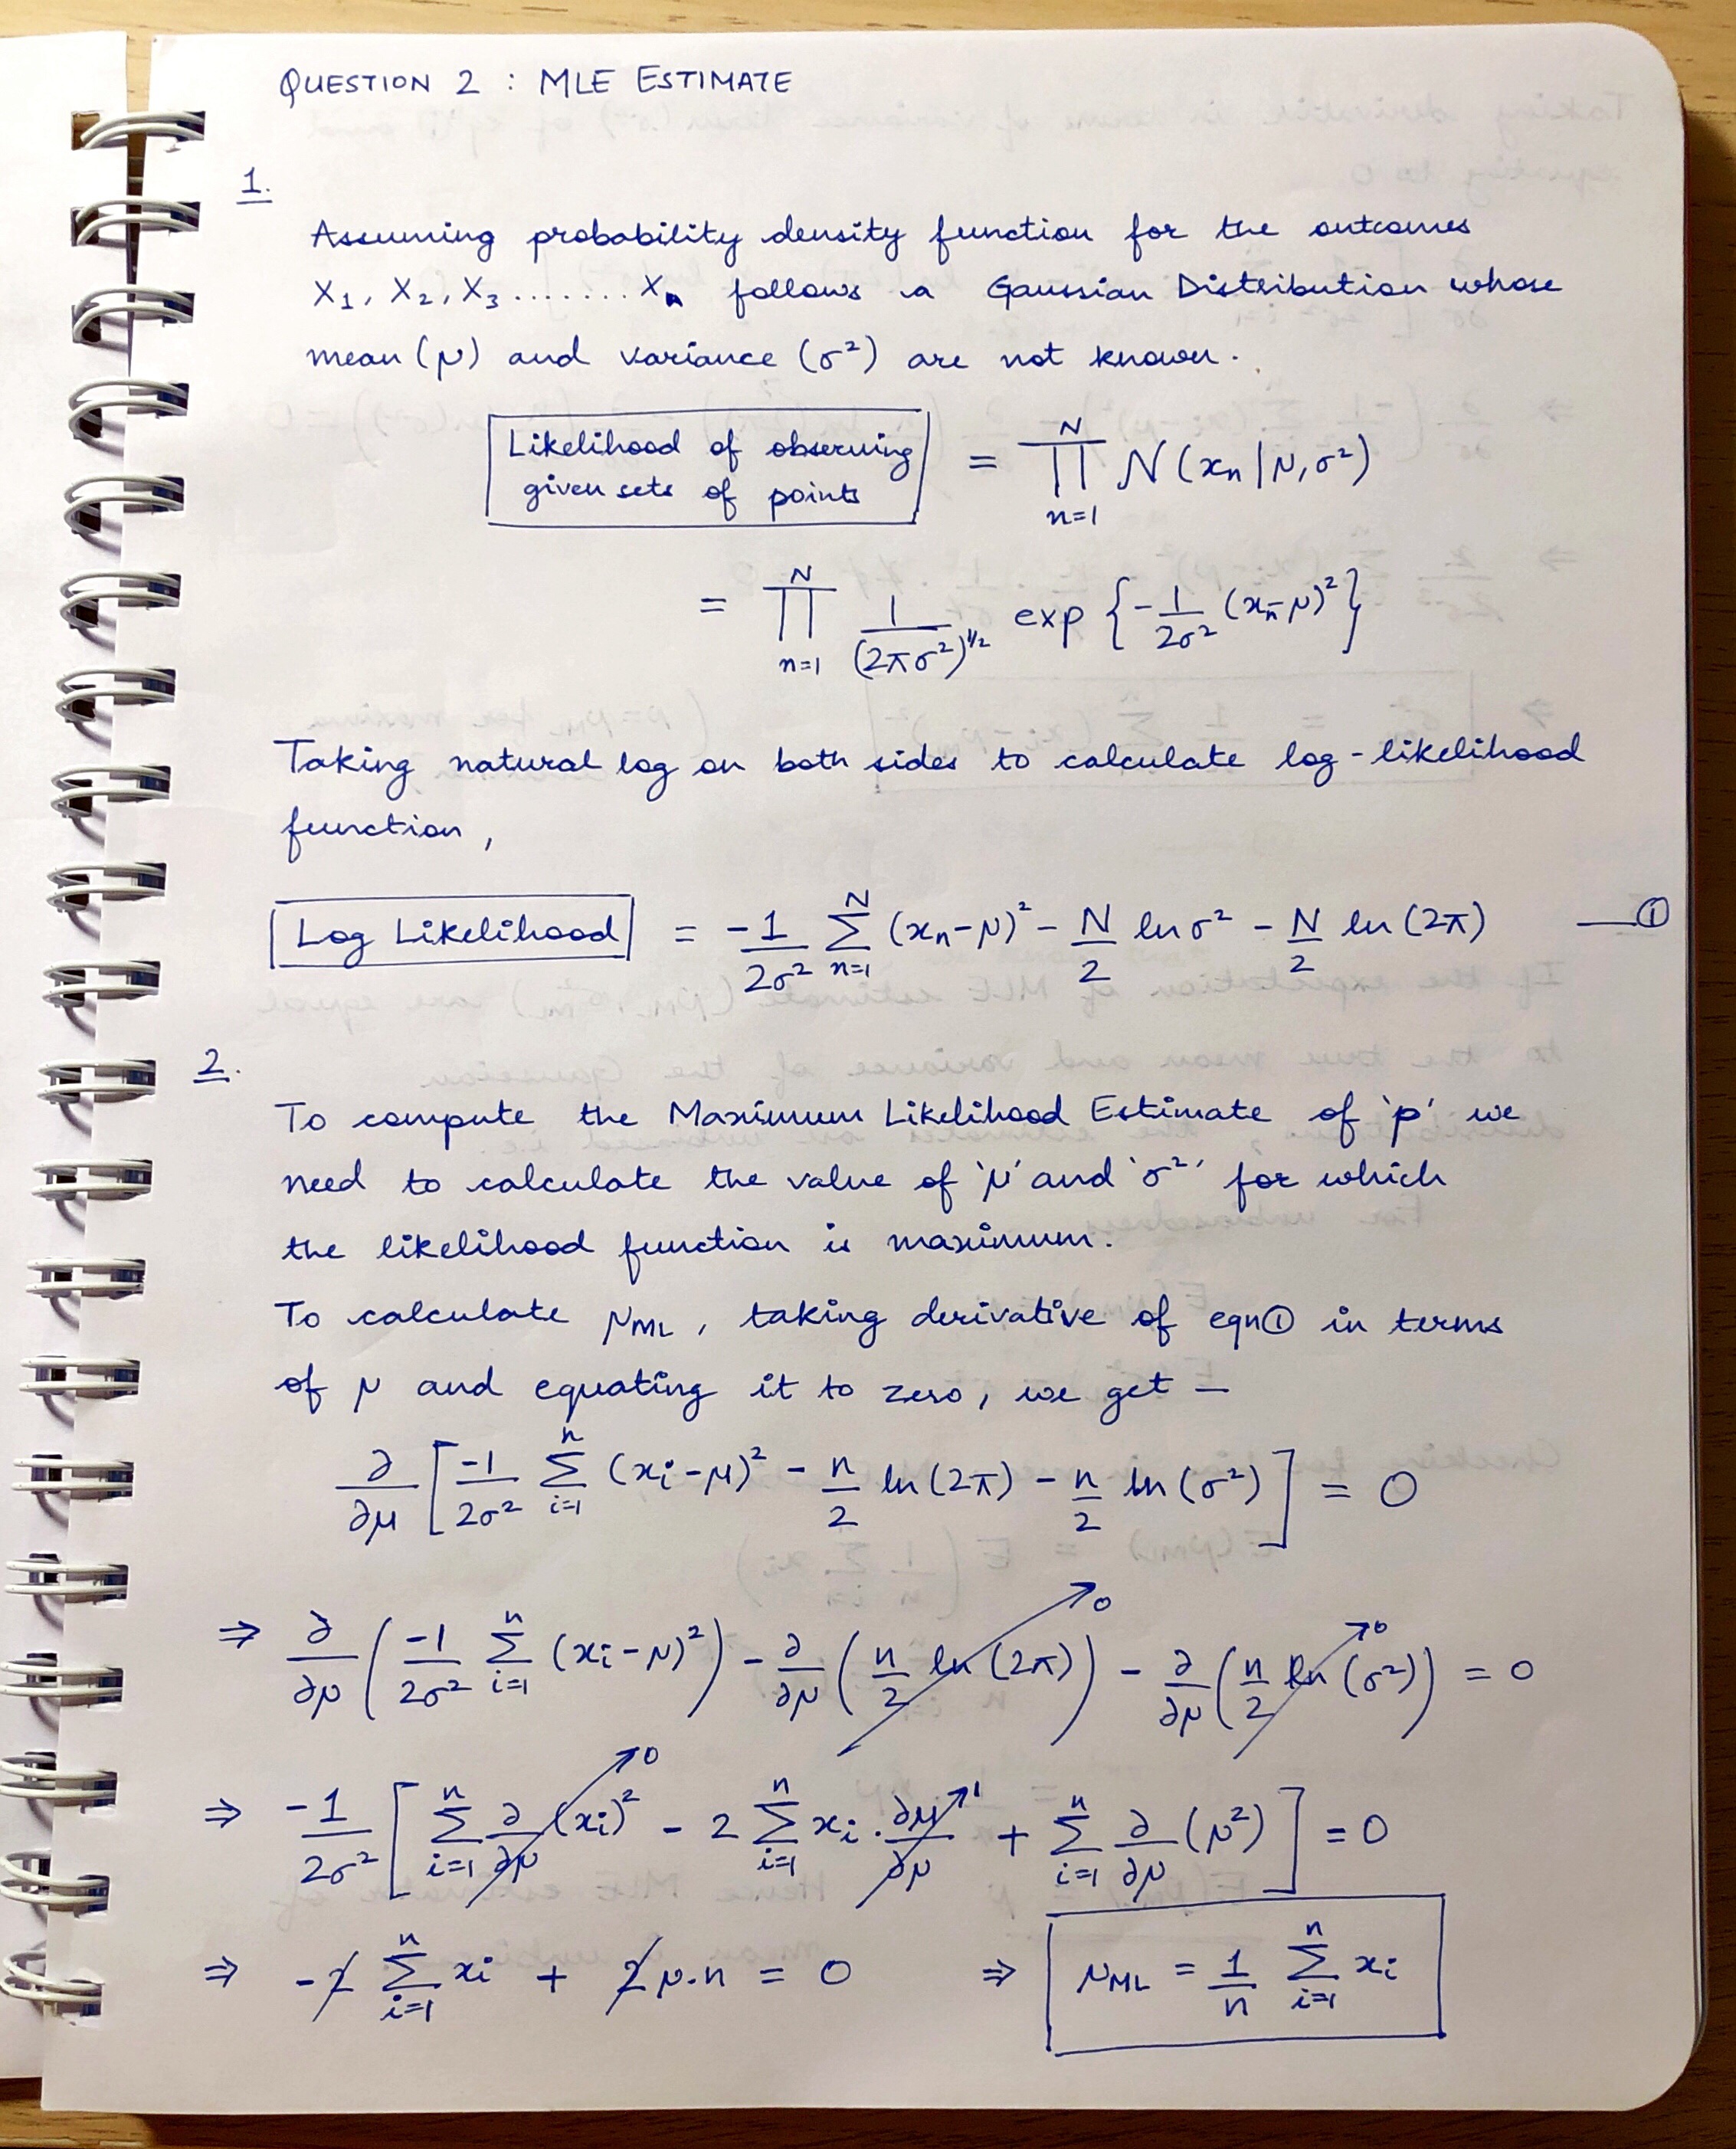 QUESTION 2 : MLE ESTIMATE
1.
Assuming probability density function for the outcomes
X₁, X₂, X₃ ....... Xₙ follows a Gaussian Distribution whose
mean (μ) and variance (σ²) are not known.
Likelihood of observing given sets of points = ∏_{n=1}^{N} N(xₙ|μ,σ²)
= ∏_{n=1}^{N} 1/(2πσ²)^{1/2} exp {-1/2σ² (xₙ-μ)²}
Taking natural log on both sides to calculate log-likelihood
function,
Log Likelihood = -1/2σ² ∑_{n=1}^{N} (xₙ-μ)² - N/2 ln σ² - N/2 ln (2π) —①
2.
To compute the Maximum Likelihood Estimate of 'p' we
need to calculate the value of 'μ' and 'σ²' for which
the likelihood function is maximum.
To calculate μ_ML, taking derivative of eqn① in terms
of μ and equating it to zero, we get –
∂/∂μ [-1/2σ² ∑_{i=1}^{n} (xᵢ-μ)² - n/2 ln(2π) - n/2 ln(σ²)] = 0
⇒ ∂/∂μ (-1/2σ² ∑_{i=1}^{n} (xᵢ-μ)²) - ∂/∂μ (n/2 ln(2π))→0 - ∂/∂μ (n/2 ln(σ²))→0 = 0
⇒ -1/2σ² [∑_{i=1}^{n} ∂/∂μ (xᵢ)²→0 - 2 ∑_{i=1}^{n} xᵢ . ∂μ/∂μ→1 + ∑_{i=1}^{n} ∂/∂μ (μ²)] = 0
⇒ -2 ∑_{i=1}^{n} xᵢ + 2μ.n = 0 ⇒ μ_ML = 1/n ∑_{i=1}^{n} xᵢ